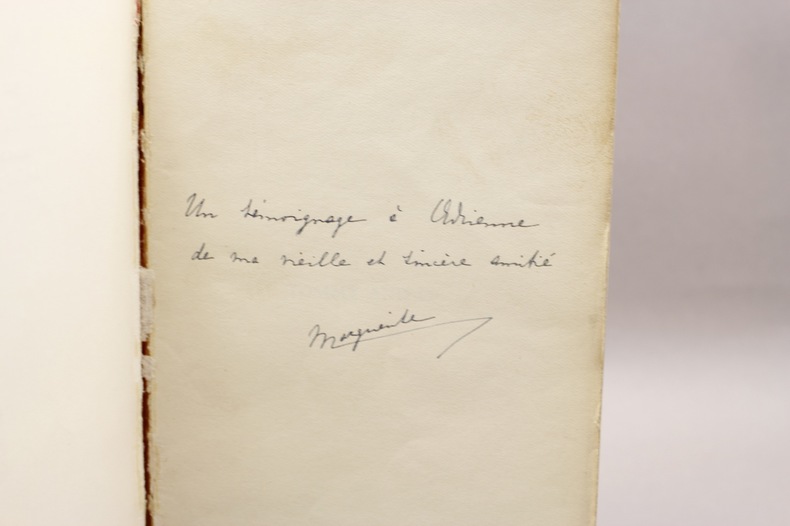 Un témoignage à Adrienne
de ma vieille et sincère amitié
Marguerite